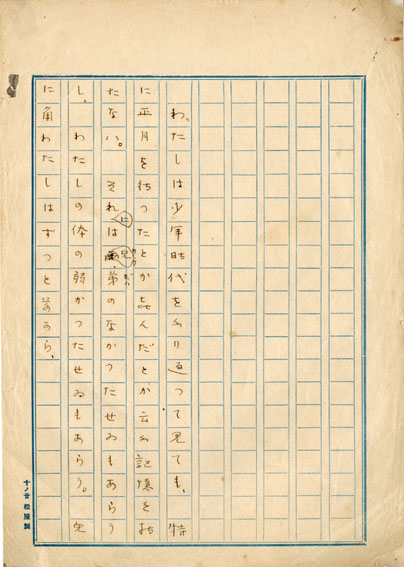 わたしは少年時代をふり返つて見ても、特
に正月を待つたとか喜んだとか云ふ記憶を持
たない。それは兄弟のなかつたせゐもあらう
し、わたしの体の弱かつたせゐもあらう。兎
に角わたしはずつと前から、
十ノ廿 松屋製